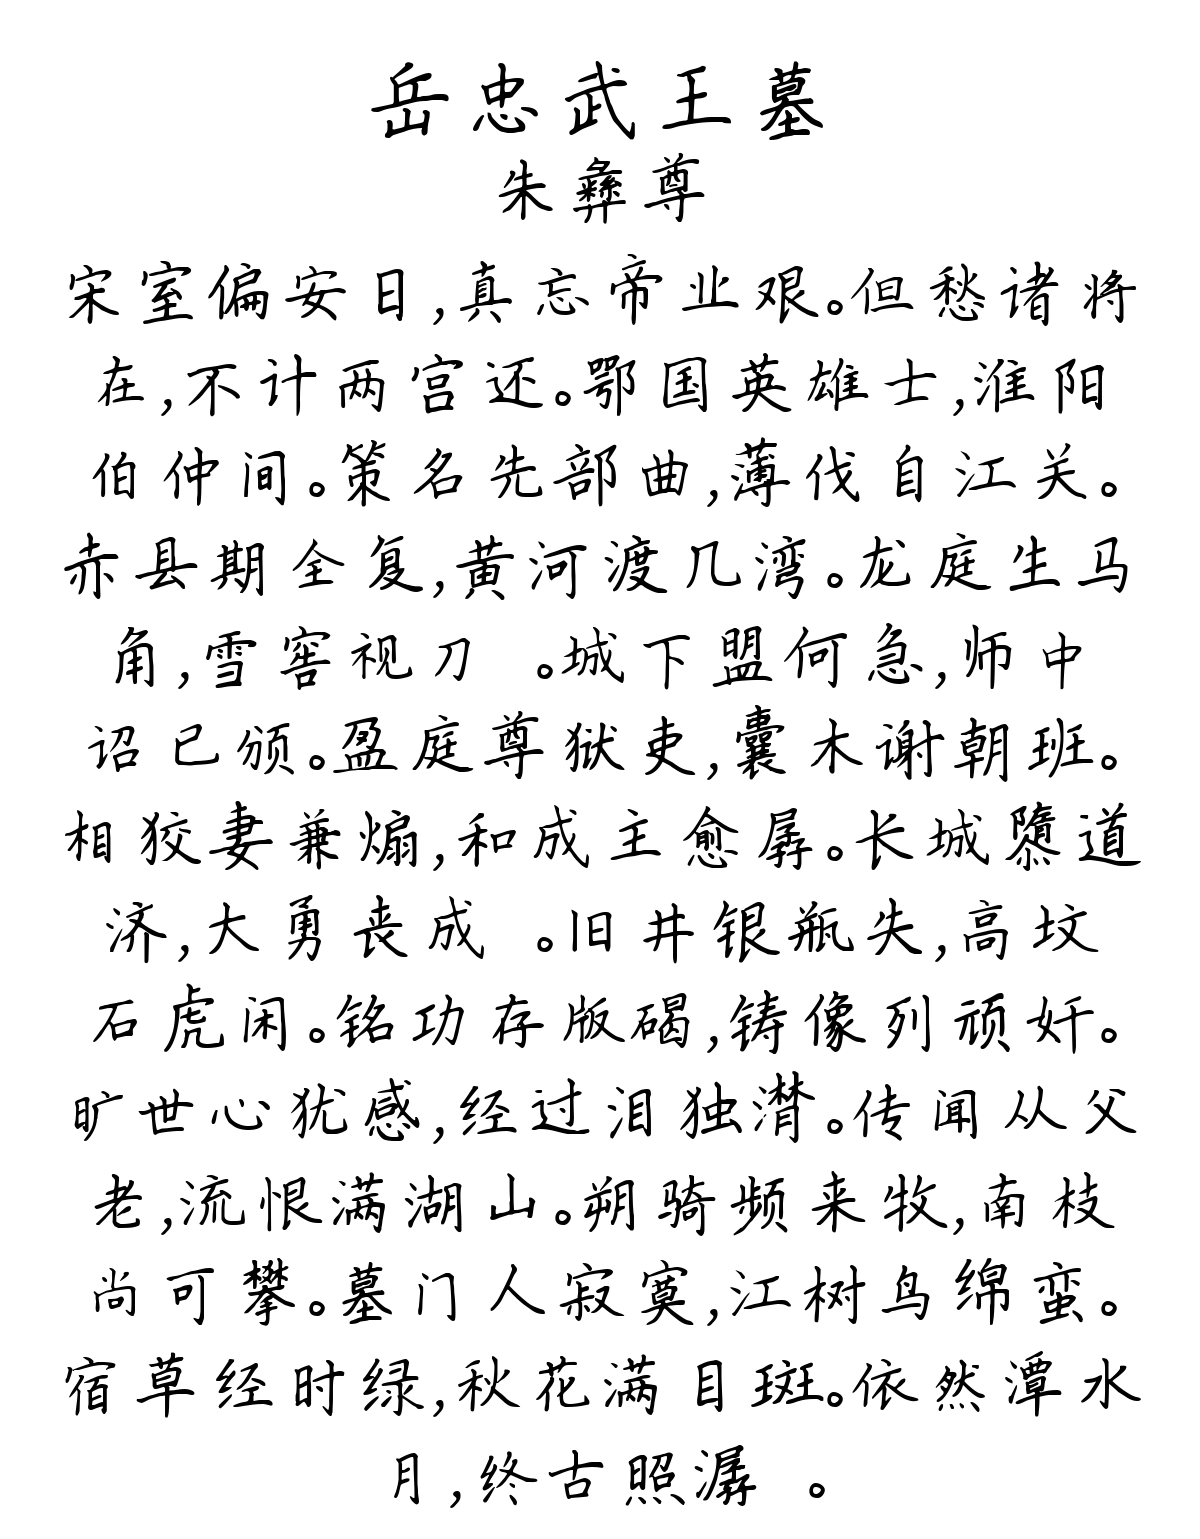 岳忠武王墓
朱彝尊
宋室偏安日,真忘帝业艰。但愁诸将
在,不计两宫还。鄂国英雄士,淮阳
伯仲间。策名先部曲,薄伐自江关。
赤县期全复,黄河渡几湾。龙庭生马
角,雪窖视刀 。城下盟何急,师中
诏已颁。盈庭尊狱吏,囊木谢朝班。
相狡妻兼煽,和成主愈孱。长城隳道
济,大勇丧成 。旧井银瓶失,高坟
石虎闲。铭功存版碣,铸像列顽奸。
旷世心犹感,经过泪独潸。传闻从父
老,流恨满湖山。朔骑频来牧,南枝
尚可攀。墓门人寂寞,江树鸟绵蛮。
宿草经时绿,秋花满目斑。依然潭水
月,终古照潺 。